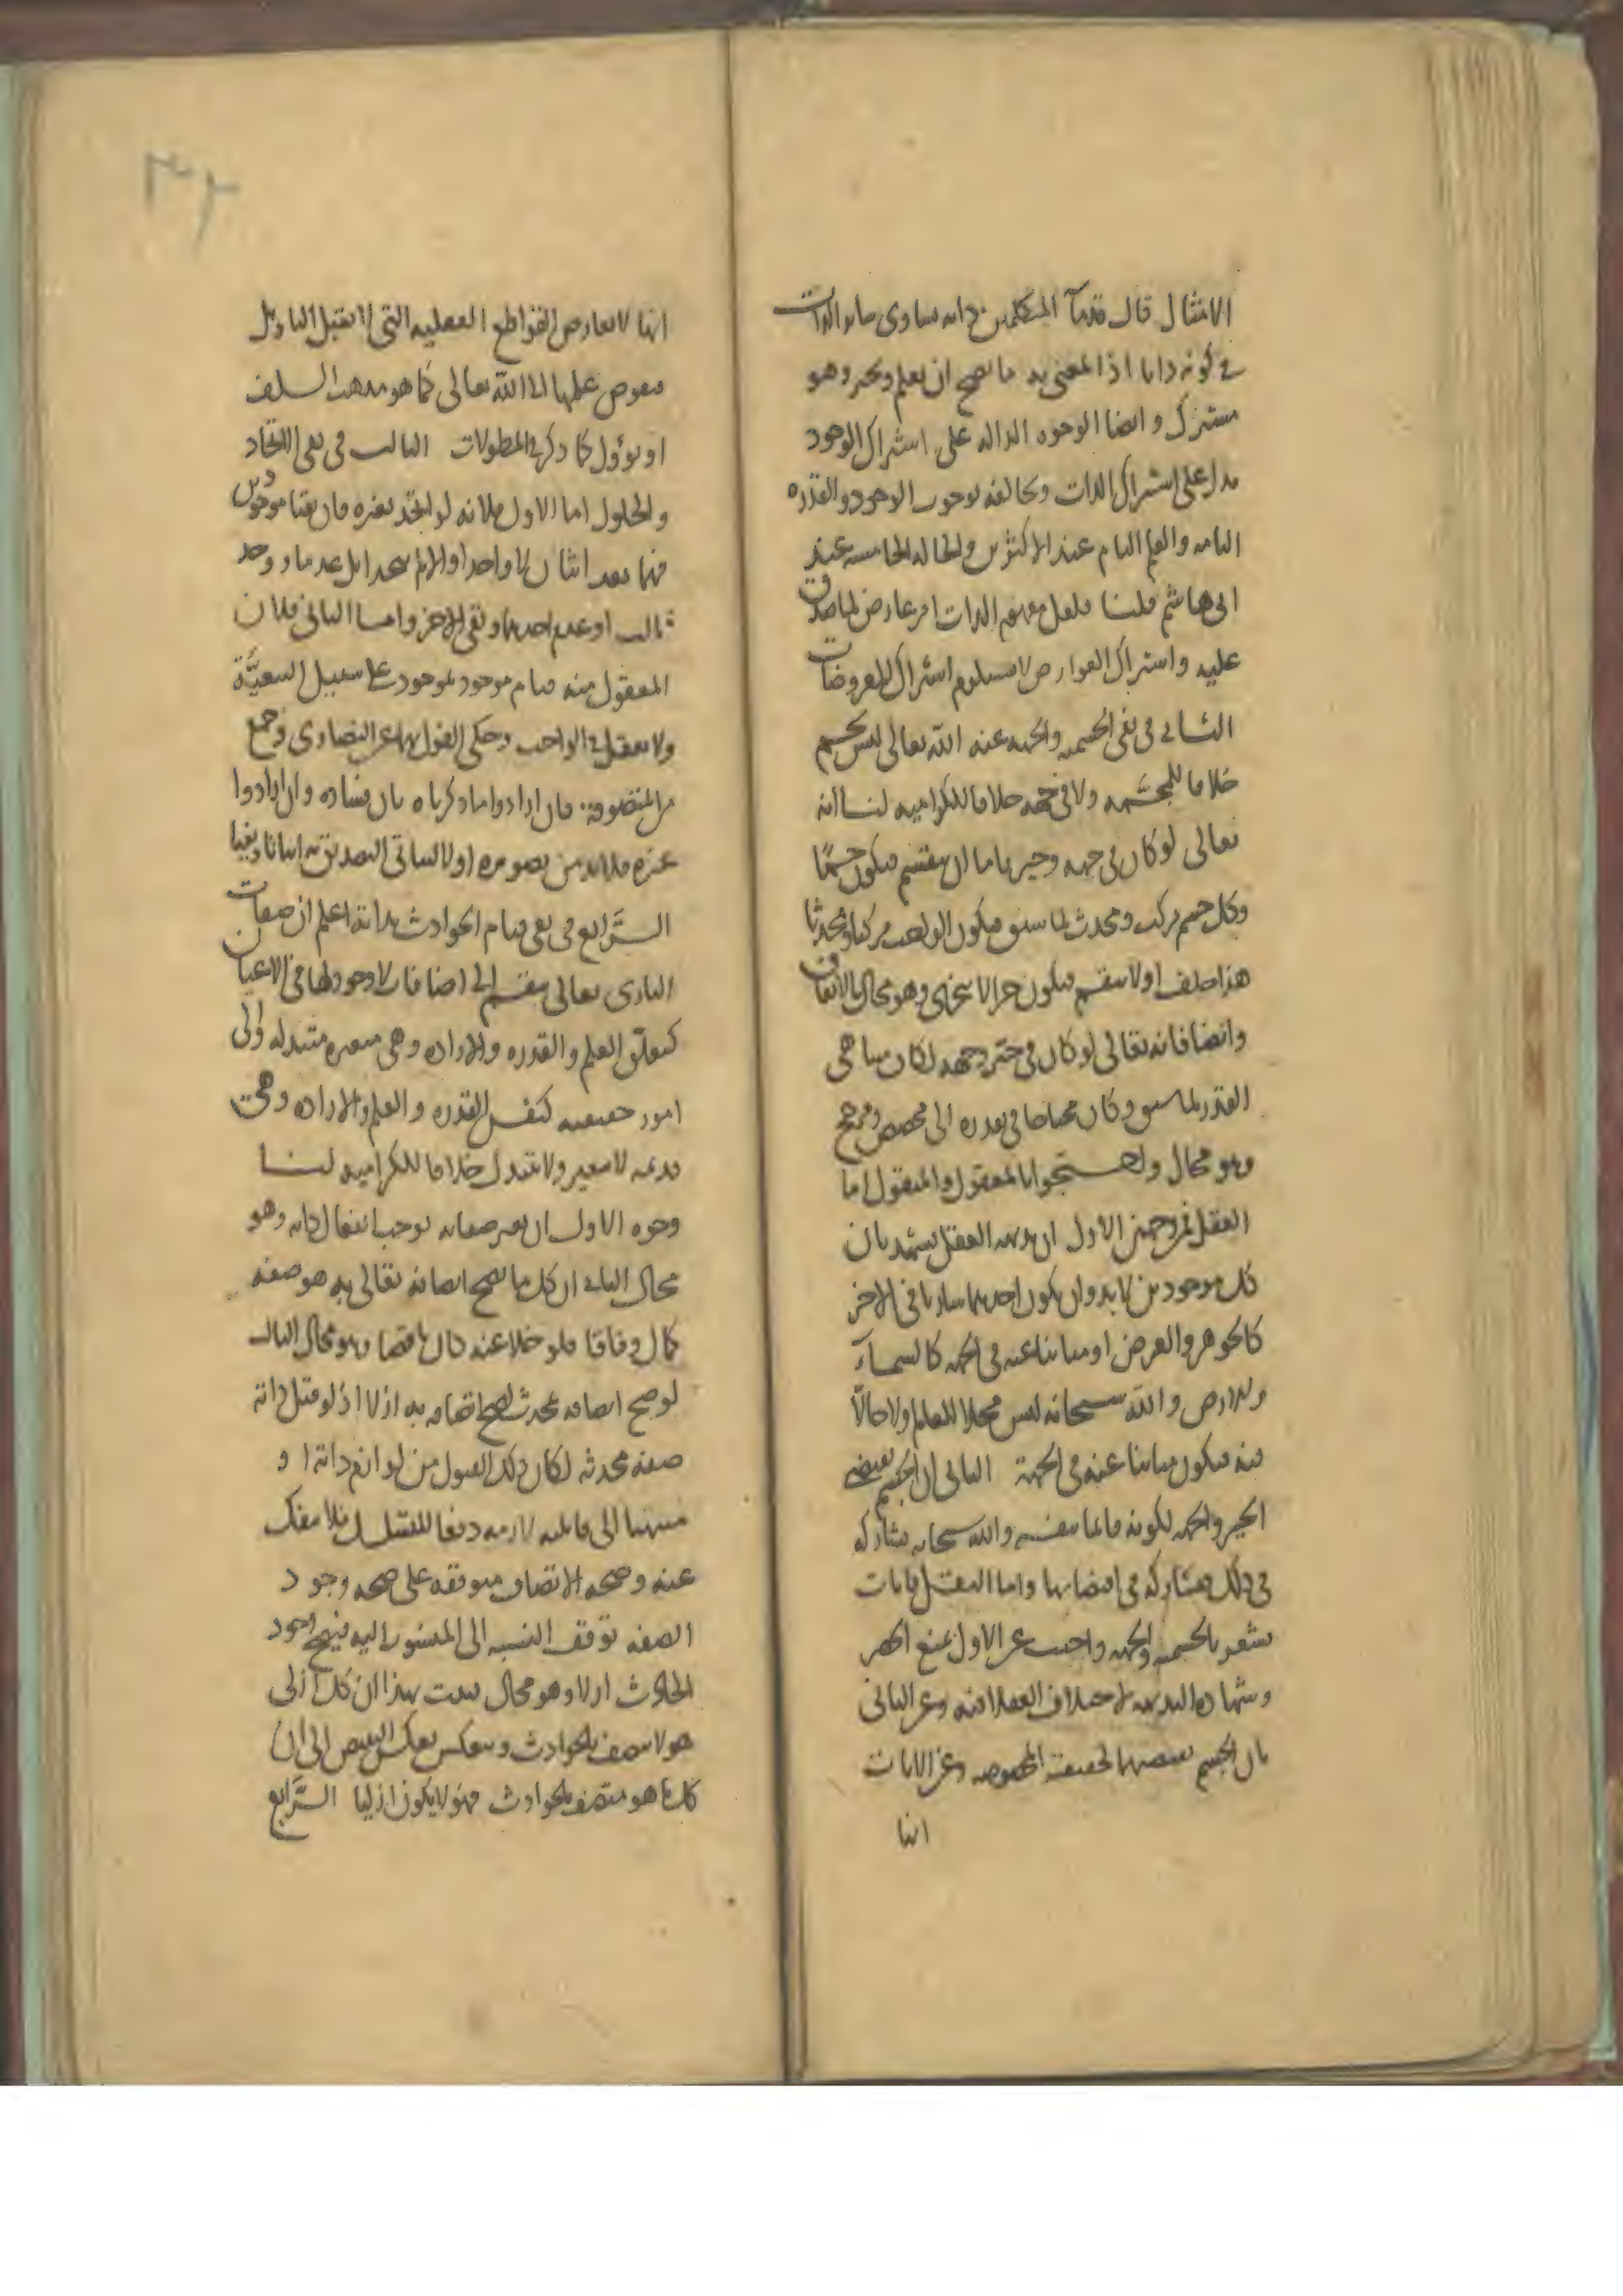 الامثال قال قدمآ المتكلمين ذاته تساوى سائر الذوات
في كونه ذاتا اذ المعنى به ما يصح ان يعلم ويخبر وهو
مشترك وايضا الوجوه الدالة على اشتراك الوجود
تدل على اشتراك الذات ويخالفه بوجوب الوجود والقدرة
التامه والعلم التام عند الاكثرين والحالة الخامسة عند
ابى هاشم قلنا فلعل مفهوم الذات امر عارض لما صدق
عليه واشتراك العوارض لا يستلزم اشتراك المعروضات
الثاني فى نفى الجسمية والجهة عنه الله تعالى ليس بجسم
خلافا للمجسّمة ولا فى جهة خلافا للكرامية لنا انه
تعالى لو كان فى جهة وحيز فاما ان ينقسم فيكون جسمًا
وكل جسم مركب ومحدث لما سبق فيكون الواجب مركبا ومحدثا
هذا خلف او لا ينقسم فيكون جزءا لا يتجزى وهو محال بالاتفاق
وايضا فانه تعالى لو كان فى حيز وجهة لكان متناهى
القدر لما سبق وكان محتاجا فى تقدره الى مخصص ومرجح
وهو محال واحتجوا بالمعقول والمنقول اما
العقل فمن وجهين الاول ان بديهة العقل يشهد بان
كل موجودين لا بد وان يكون احدهما ساريا فى الاخر
كالجوهر والعرض او مباينا عنه فى الجهة كالسمآء
والارض والله سبحانه ليس محلا للعالم ولا حالّا
فيه فيكون مباينا عنه فى الجهة الثانى ان الجسم يقتضى
الحيز والجهة لكونه قائما بنفسه والله سبحانه يشاركه
فى ذلك فيشاركه فى اقتضائهما واما النقل فايات
تشعر بالجسمية والجهة واجيب عن الاول بمنع الحصر
وشهادة البديهة لاختلاف العقلا فيه وعن الثانى
بان الجسم يقتضيهما لحقيقته المخصوصة وعن الايات
انها
٣٢
انها لا تعارض القواطع العقلية التى لا تقبل التاويل
فيفوض علمها الى الله تعالى كما هو مذهب السلف
او تؤول كما ذكر فى المطولات الثالث فى نفى الاتحاد
والحلول اما الاول فلانه لو اتحد بغيره فان بقيا موجودين
فهما بعد اثنان لا واحد او الا لم يتحدا بل عدما ووجد
ثالث او عدم احدهما وبقى الاخر واما الثانى فلان
المعقول منه قيام موجود بموجود على سبيل التبعيَّة
ولا يعقل فى الواجب وحكى القول بهما عن النصارى وجمع
من المتصوفة فان ارادوا ما ذكرناه بان فساده وان ارادوا
غيره فلا بد من تصويره اولا ليتاتى التصديق به اثباتا ونفيا
الرَّابع فى نفى قيام الحوادث بذاته اعلم ان صفات
البارى تعالى ينقسم الى اضافات لا وجود لها فى الاعيان
كتعلّق العلم والقدرة والارادة وهى متغيرة متبدله والى
امور حقيقية كنفس القدرة والعلم والارادة وهى
قديمة لا تتغير ولا تتبدل خلافا للكرامية لنا
وجوه الاول ان تغير صفاته يوجب انفعال ذاته وهو
محال الثانى ان كل ما يصح اتصافه تعالى به هو صفة
كمال وفاقا فلو خلا عنه كان ناقصا وهو محال الثالث
لو صح اتصافه بمحدث لصح اتصافه به ازلا اذ لو قبل ذاته
صفة محدثة لكان ذلك القبول من لوازم ذاته او
منتهيا الى قابلية لازمه دفعا للتسلسل فلا ينفك
عنه وصحة الاتصاف متوقفة على صحة وجود
الصفة توقف النسبة الى المنسوب اليه فيصح وجود
الحادث ازلا وهو محال فثبت بهذا ان كل ازلى
هو لا يتصف بالحوادث وينعكس بعكس النقيض الى ان
كل ما هو متصف بالحوادث فهو لا يكون ازليا الرَّابع